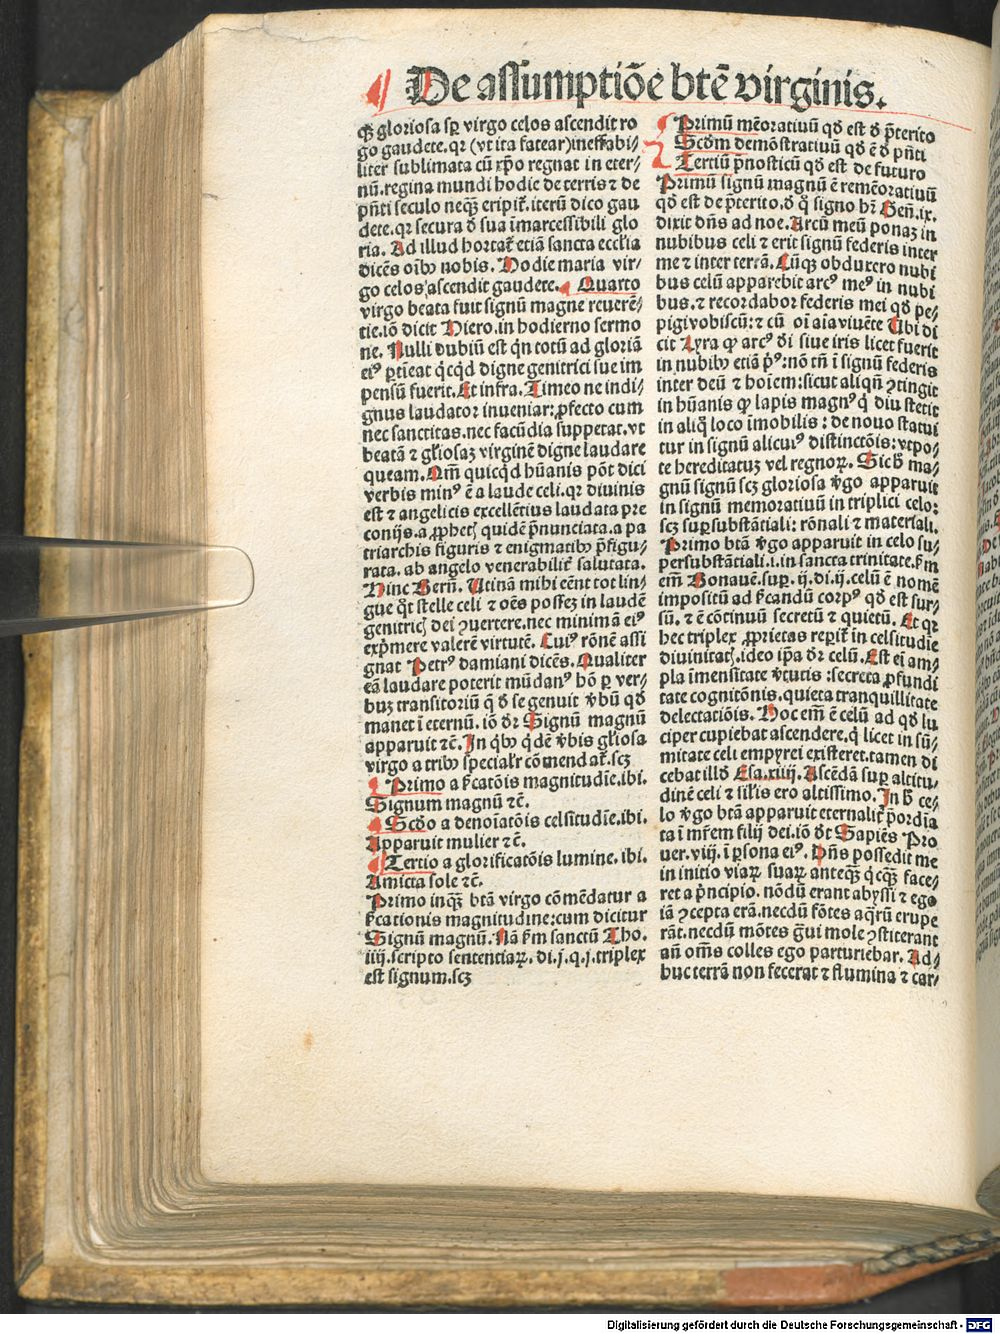 De assumptiõe btẽ virginis.
ꝙ gloriosa sꝑ virgo celos ascendit ro
go gaudete. qꝛ (vt ita fatear) ineffabi⸗
liter sublimata cũ xp̃o regnat in eter⸗
nũ. regina mundi hodie de terris ⁊ de
pñti seculo neqꝫ eripit᷑. iterũ dico gau
dete. qꝛ secura ď sua ĩmarcessibili glo
ria. Ad illud hortat᷑ etiã sancta eccl̃ia
dicẽs oĩbꝰ nobis. Hodie maria vir⸗
go celos ascendit gaudete. Quarto
virgo beata fuit signũ magne reuerẽ⸗
tie. iõ dicit Hiero. in hodierno sermo
ne. Nulli dubiũ est qñ totũ ad gloriã
eiꝰ ꝑtĩeat qͥcqͥd digne genitrici sue im
pensũ fuerit. Et infra. Timeo ne indi⸗
gnus laudator inueniar: ꝓfecto cum
nec sanctitas. nec facũdia suppetat. vt
beatã ⁊ gl̃iosaꝫ virginẽ digne laudare
queam. Qm̃ quicqͥd hũanis põt dici
verbis minꝰ ẽ a laude celi. qꝛ diuinis
est ⁊ angelicis excellẽtius laudata pre
conijs. a ꝓphetꝭ quidẽ p̃nunciata. a pa
triarchis figuris ⁊ enigmatibꝰ p̃figu⸗
rata. ab angelo venerabilit᷑ salutata.
Hinc Bern̄. Utinã mihi eẽnt tot lin⸗
gue qͦt stelle celi ⁊ oẽs possẽꝫ in laudẽ
genitricꝭ dei ꝯuertere. nec minimã eiꝰ
exp̃mere valerẽ virtutẽ. Cuiꝰ rõnẽ assi
gnat Petrꝰ damiani dicẽs. Qualiter
eã laudare poterit mũdanꝰ hõ ꝑ ver⸗
buꝫ transitoriũ q̃ ď se genuit ṽbũ qď
manet ĩ eternũ. iõ ďr Signũ magnũ
apparuit ⁊č. In qͥbꝰ qͥdẽ ṽbis gl̃iosa
virgo a tribꝰ sp̃ecialꝛ cõmendat᷑. scꝫ
Primo a p̃catõis magnitudĩe. ibi.
Signum magnũ ⁊č.
Scďo a denoĩatõis celsitudĩe. ibi.
Apparuit mulier ⁊č.
Tertio a glorificatõis lumine. ibi.
Amicta sole ⁊č.
Primo inqꝫ btã virgo cõmẽdatur a
p̃cationis magnitudine: cum dicitur
Signũ magnũ. Nã ẜm sanctũ Tho.
iiij. scripto sententiaꝝ. di. j. q. j. triplex
est signum. scꝫ
Primũ mẽoratiuũ qď est ď p̃terito
Scďm demõstratiuũ qď ẽ ď pñti
Tertiũ p̃nosticũ qď est de futuro
Primũ signũ magnũ ẽ remẽoratiuũ
qď est de p̃terito. ď qͦ signo hr̃ Gen̄. ix.
dixit dñs ad noe. Arcũ meũ ponaꝫ in
nubibus celi ⁊ erit signũ federis inter
me ⁊ inter terrã. Cũqꝫ obduxero nubi
bus celũ apparebit arcꝰ meꝰ in nubi
bus. ⁊ recordabor federis mei qď pe⸗
pigi vobiscũ: ⁊ cũ oĩ aĩa viuẽte Ubi di
cit Lyra ꝙ arcꝰ ďi siue iris licet fuerit
in nubibꝰ etiã pͥꝰ: nõ tñ ĩ signũ federis
inter deũ ⁊ hoĩem: sicut aliqñ ꝯtingit
in hũanis ꝙ lapis magnꝰ qͥ diu stetit
in aliqͦ loco ĩmobilis: de nouo statui
tur in signũ alicuiꝰ distinctõis: vtpo⸗
te hereditatuꝫ vel regnoꝝ. Sic hͦ ma⸗
gnũ signũ scꝫ gloriosa ṽgo apparuit
in signũ memoratiuũ in triplici celo:
scꝫ suꝑsubstãtiali: rõnali ⁊ materiali.
Primo btã ṽgo apparuit in celo su⸗
persubstãtiali. i. in sancta trinitate. ẜm
em̃ Bonauẽ. suꝑ. ij. di. ij. celũ ẽ nomẽ
impositũ ad p̃candũ corpꝰ qď est sur⸗
sũ. ⁊ ẽ cõtinuũ secretũ ⁊ quietũ. Et qꝛ
hec triplex ꝓprietas reꝑit᷑ in celsitudĩe
diuinitatꝭ. ideo ip̃a ďr celũ. Est eĩ am⸗
pla ĩmensitate ṽtutis: secreta ꝓfundi
tate cognitõnis. quieta tranquillitate
delectatiõis. Hoc em̃ ẽ celũ ad qď lu
ciper cupiebat ascendere. qͥ licet in sũ⸗
mitate celi empyrei existeret. tamen di
cebat illď Esa. xiiij. Ascẽdã suꝑ altitu⸗
dinẽ celi ⁊ sil̃is ero altissimo. In hͦ ce⸗
lo ṽgo btã apparuit eternalit᷑ p̃ordĩa
ta ĩ mr̃em filij dei. iõ ďt Sapiẽs Pro
uer. viij. ĩ ꝑsona eiꝰ. Dñs possedit me
in initio viaꝝ suaꝝ anteqꝫ qͥcqꝫ face⸗
ret a pͥncipio. nõdũ erant abyssi ⁊ ego
iã ꝯcepta erã. necdũ fõtes aqͣrũ erupe
rãt. necdũ mõtes gͣui mole ꝯstiterant
añ om̃s colles ego parturiebar. Ad⸗
huc terrã non fecerat ⁊ flumina ⁊ car⸗
Digitalisierung gefördert durch die Deutsche Forschungsgemeinschaft - DFG